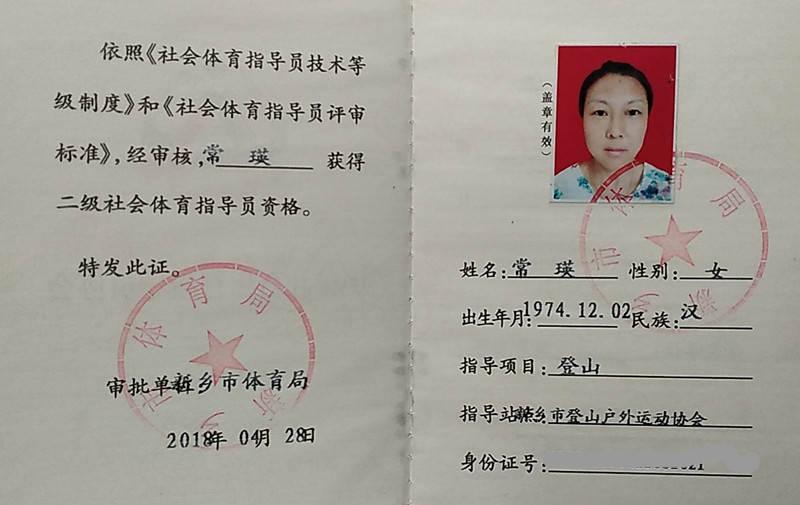 依照《社会体育指导员技术等
级制度》和《社会体育指导员评审
标准》,经审核,常 瑛 获得
二级社会体育指导员资格。
特发此证。
审批单新乡市体育局
2018年 04月 28日
新乡市体育局
(盖章有效)
新乡市体育局
姓名:常 瑛 性别:女
出生年月:1974.12.02民族:汉
指导项目:登山
指导站新乡市登山户外运动协会
身份证号: